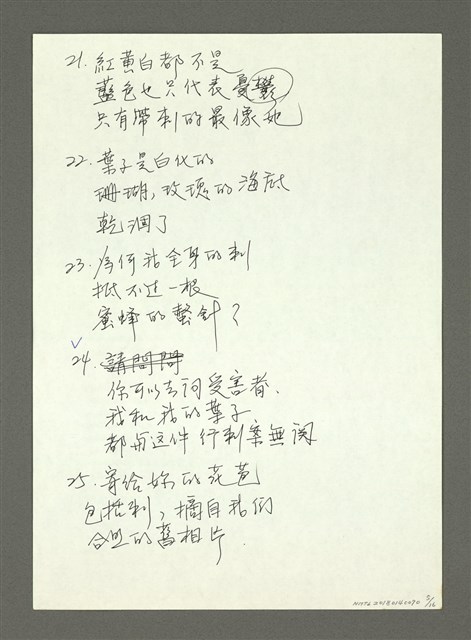 21. 紅黃白都不是
藍色也只代表憂鬱
只有帶刺的最像她
22. 葉子是白化的
珊瑚,玫瑰的海底
乾涸了
23. 為何我全身的刺
抵不过一根
蜜蜂的螫針?
24. 請問問
你可以去问受害者、
我和我的葉子
都与这件行刺案無関
25. 寄给妳的花苞
包括刺,摘自我们
合照的舊相片.